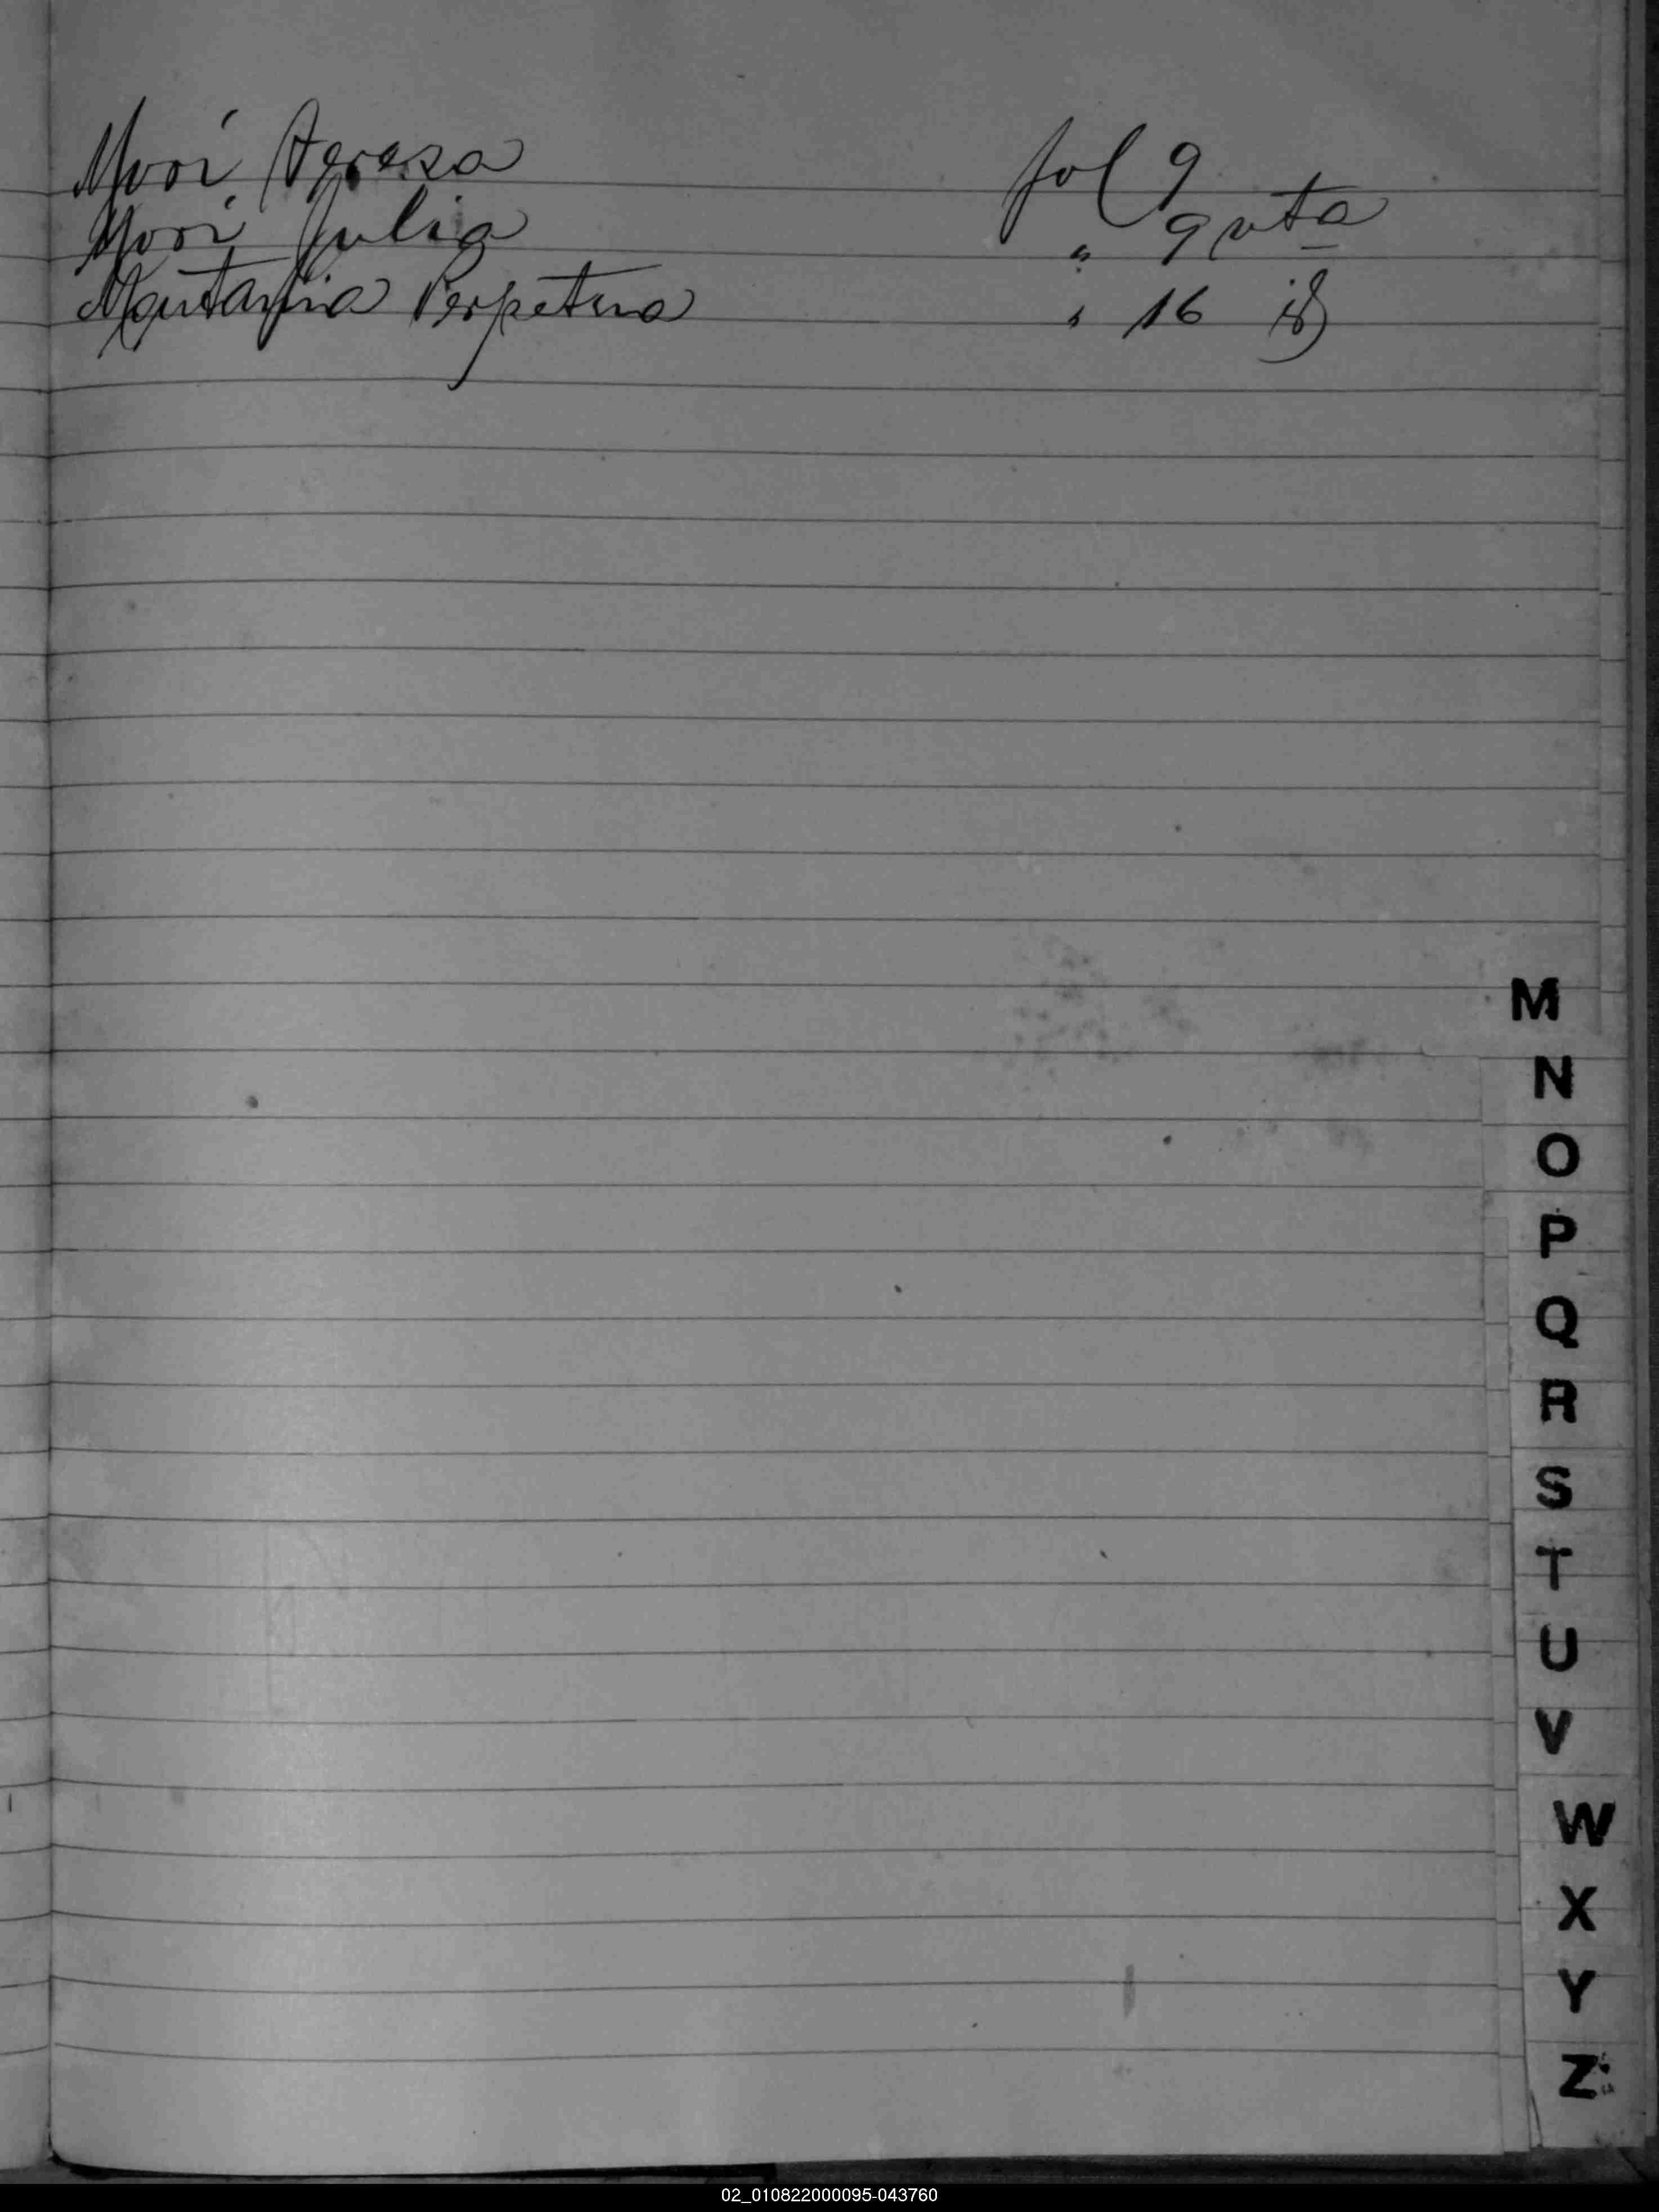 Mori Teresa fol 9
Mori Julia " 9 vta
Perpetua " 16 id
M
N
O
P
Q
R
S
T
U
V
W
X
Y
Z
02_010822000095-043760